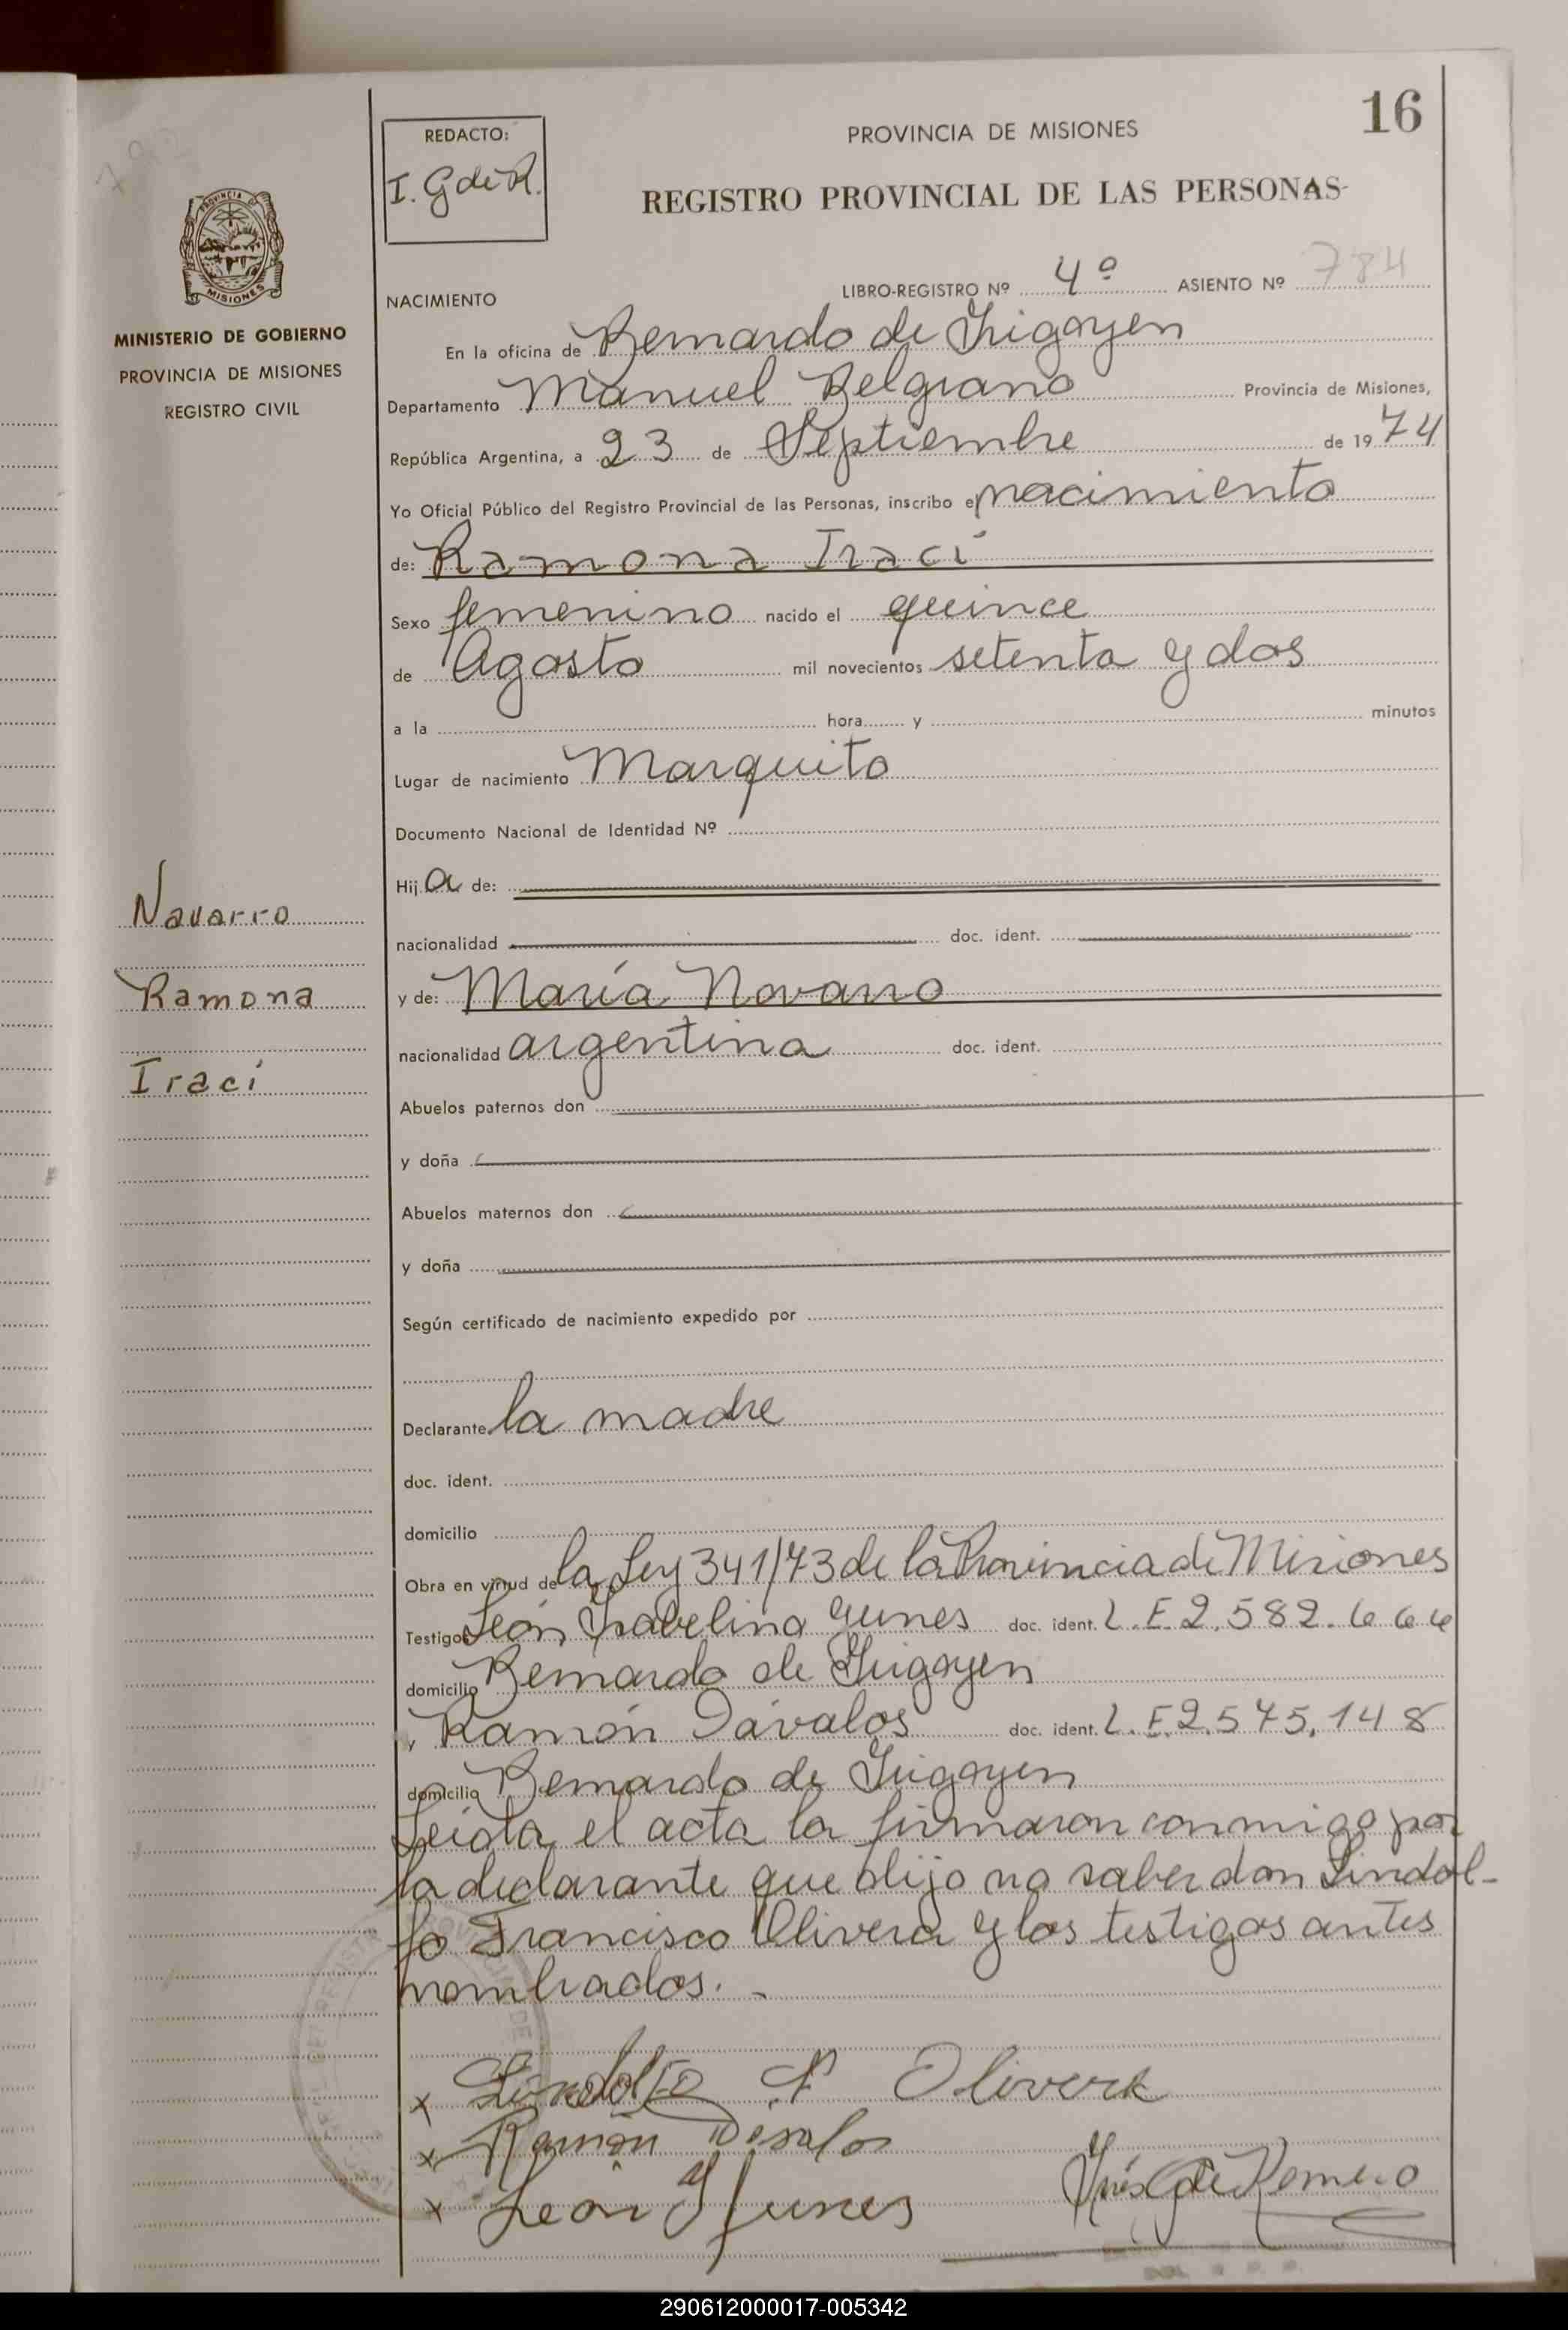 16
REDACTO:
I. G de R.
PROVINCIA DE MISIONES
REGISTRO PROVINCIAL DE LAS PERSONAS
PROVINCIA DE
MISIONES
MINISTERIO DE GOBIERNO
PROVINCIA DE MISIONES
REGISTRO CIVIL
NACIMIENTO
LIBRO-REGISTRO Nº 4º ASIENTO Nº 784
En la oficina de Bernardo de Irigoyen
Departamento Manuel Belgrano Provincia de Misiones,
República Argentina, a 23 de Septiembre de 1974
Yo Oficial Público del Registro Provincial de las Personas, inscribo el nacimiento
de: Ramona Iraci
Sexo femenino nacido el quince
de Agosto mil novecientos setenta y dos
a la hora y minutos
Lugar de nacimiento Marquito
Documento Nacional de Identidad Nº
Hija de:
nacionalidad doc. ident.
Navarro
Ramona
Iraci
y de: María Navarro
nacionalidad argentina doc. ident.
Abuelos paternos don
y doña
Abuelos maternos don
y doña
Según certificado de nacimiento expedido por
Declarante la madre
doc. ident.
domicilio
Obra en virtud de la Ley 341/73 de la Provincia de Misiones
Testigos León Isabelino Yunes doc. ident. L.E. 2.582.666
domicilio Bernardo de Irigoyen
y Ramón Dávalos doc. ident. L.E. 2.575.148
domicilio Bernardo de Irigoyen
Leida el acta la firmaron conmigo por
la declarante que dijo no saber don Lindol-
fo Francisco Olivera y los testigos antes
nombrados. -
x Lindolfo F Olivera
x Ramón Dávalos
x León Y Junes
Inés G de Romero
290612000017-005342